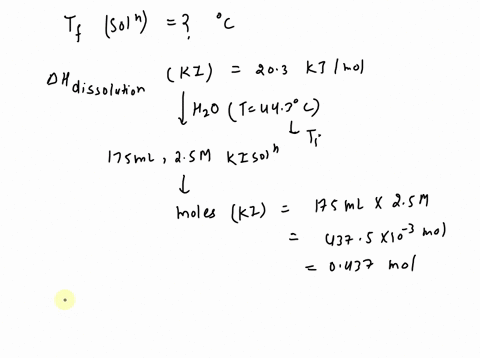 Tf (solⁿ) = ? °C
ΔHdissolution (KI) = 20.3 KJ/mol
↓ H2O (T=44.7°C)
↳ Ti
175mL, 2.5M KI solⁿ
↓
moles (KI) = 175 mL × 2.5M
= 437.5 ×10⁻³ mol
= 0.437 mol